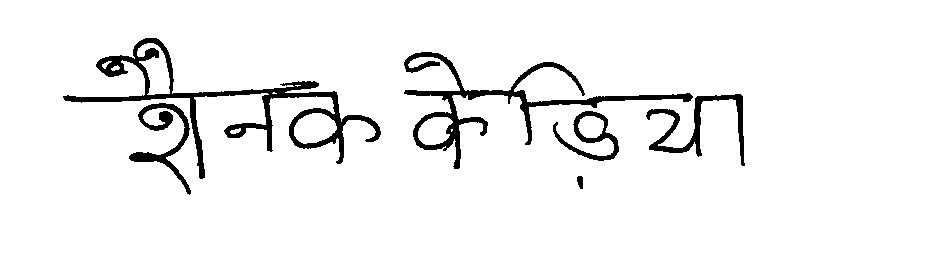 शैनक केड़िया